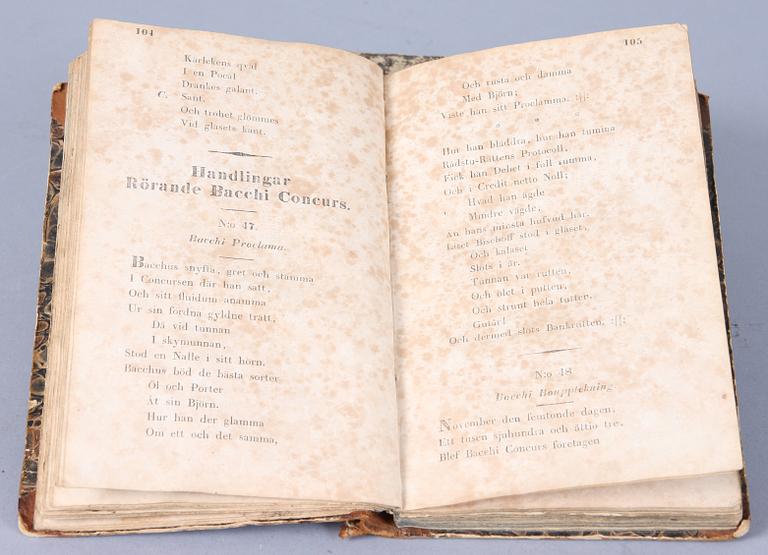 104
Kärlekens qval
I en Pocal
Dränkes galant.
C. Sant.
Och trohet glömmes
Vid glasets kant.
Handlingar
Rörande Bacchi Concurs.
N:o 47.
Bacchi Proclama.
Bacchus snyfta, gret och stamma
I Concursen där han satt,
Och sitt fluidum anamma
Ur sin fordna gyldne tratt,
Då vid tunnan
I skymunnan,
Stod en Nalle i sitt horn.
Bacchus böd de bästa sorter
Öl och Porter
Åt sin Björn.
Hur han der glamma
Om ett och det samma,
105
Och rusta och damma
Med Björn;
Viste han sitt Proclamma. :||:
Hur han bläddra, hur han tumma
Rådstu-Rättens Protocoll,
Fick han Debet i full summa,
Och i Credit netto Noll;
Hvad han ägde
Mindre vägde,
An hans minsta hufvud hår.
Litet Bischoff stod i glaset,
Och kalaset
Slöts i år.
Tunnan var rutten,
Och ölet i putten,
Och strunt hela tutten,
Gutår!
Och dermed slöts Bankrutten. :||:
N:o 48
Bacchi Bouppteckning.
November den femtonde dagen,
Ett tusen sjuhundra och åttio tre,
Blef Bacchi Concurs företagen